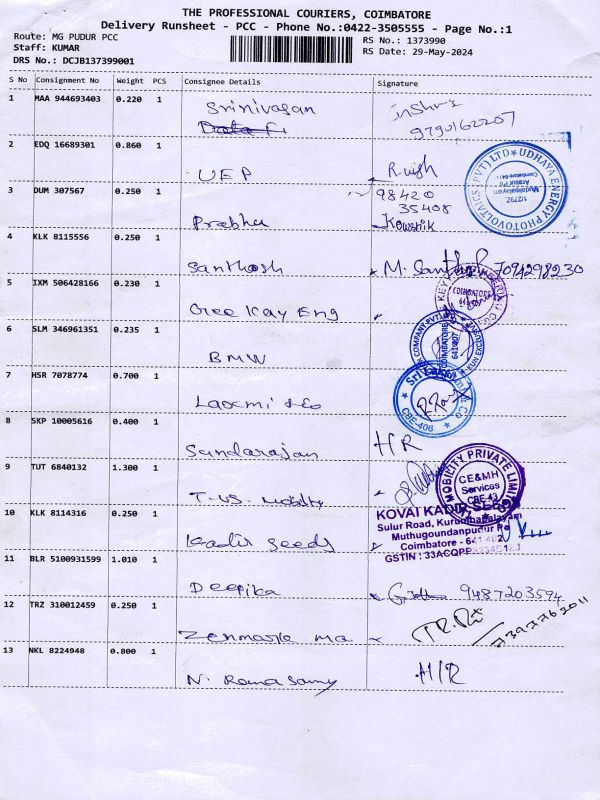 THE PROFESSIONAL COURIERS, COIMBATORE
Delivery Runsheet - PCC - Phone No.:0422-3505555 - Page No.:1
Route: MG PUDUR PCC
RS No.: 1373990
Staff: KUMAR
RS Date: 29-May-2024
DRS No.: DCJB137399001
S No Consignment No Weight PCS Consignee Details Signature
1 MAA 944693403 0.220 1 Srinivasan
9790162207
2 EDQ 16689301 0.860 1 UEP
UDHAYA ENERGY PHOTOVOLTAICS (PVT) LTD
1/279Z
Arasur Po
3 DUM 307567 0.250 1 Prabhu
98420
35408
Kowshik
4 KLK 8115556 0.250 1 Santhosh M. Santhosh 7094298230
5 IXM 506428166 0.230 1 Cree Kay Eng
COIMBATORE
6 SLM 346961351 0.235 1 BMW
COMPANY PVT
COIMBATORE
641407
7 HSR 7078774 0.700 1 Laxmi
Sri
CBE-406
8 SKP 10005616 0.400 1 Sundarajan H/R
9 TUT 6840132 1.300 1 T-VS. Mobility
MOBILITY PRIVATE LIMITED
CE&MH
Services
CBE-43
10 KLK 8114316 0.250 1 Kadir Seeds
KOVAI KADIR SEEDS
Sulur Road, Kurumbapalayam
Muthugoundanpudur Po
Coimbatore - 641
GSTIN : 33ACQPP
11 BLR 5100931599 1.010 1 Deepika 9487203594
12 TRZ 310012459 0.250 1 Zenmark ma
7397762011
13 NKL 8224948 0.800 1 N. Ramasamy H/R